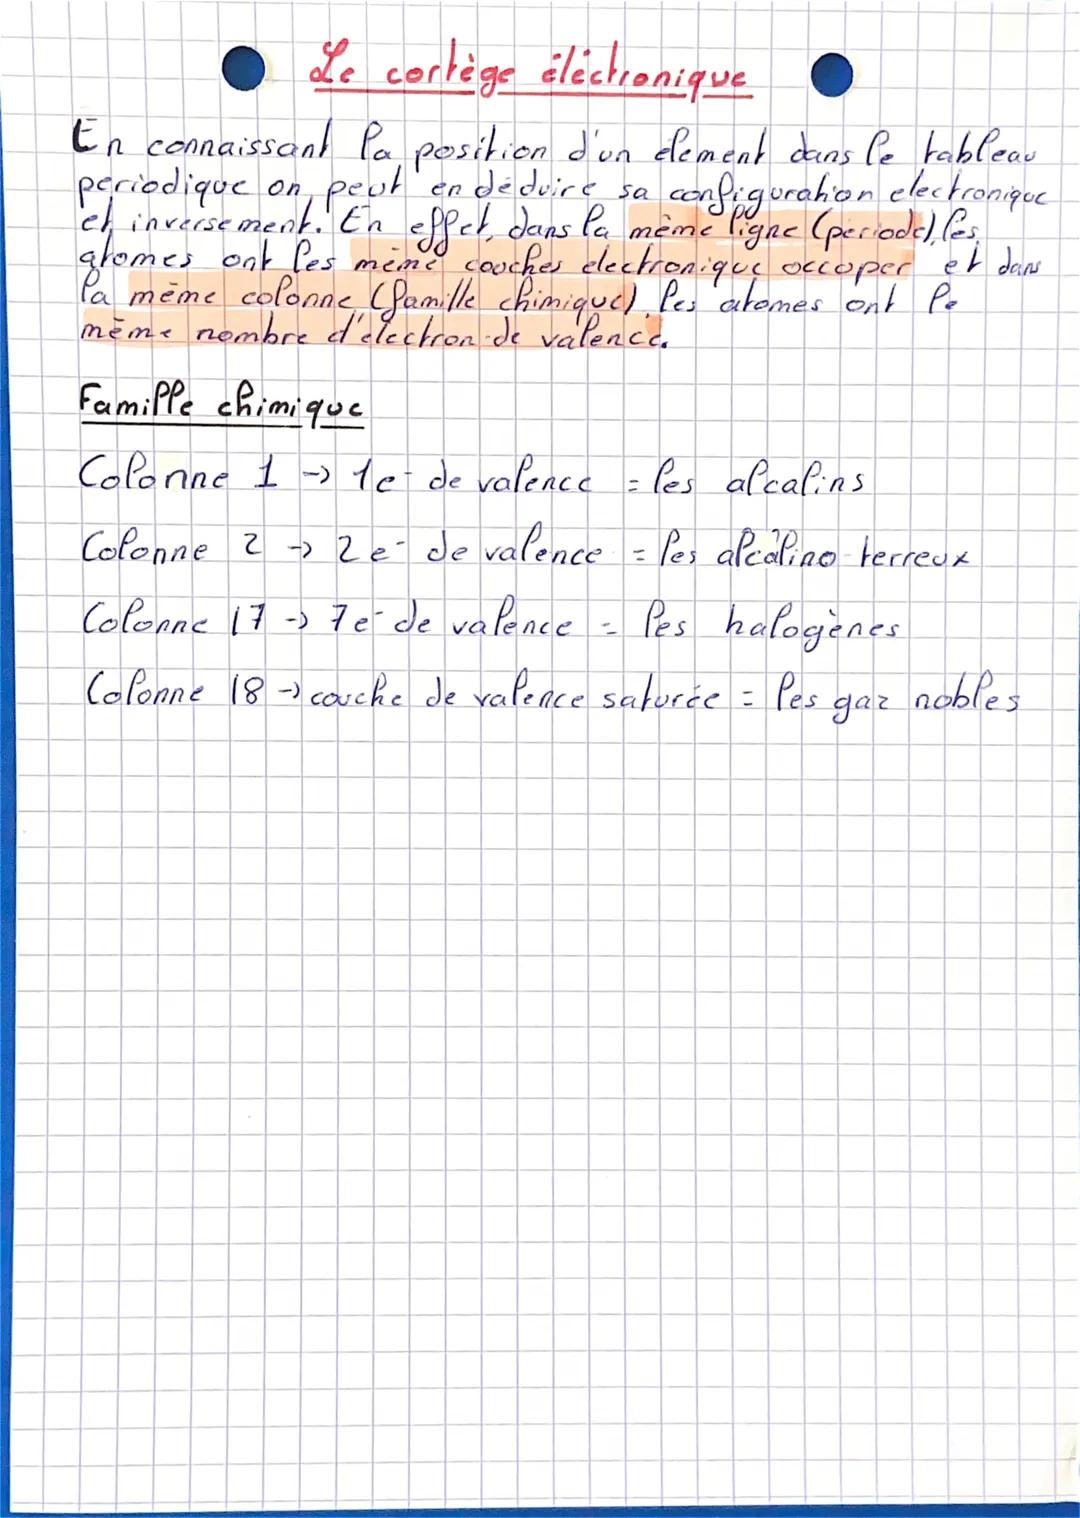 Le cortège éléctronique
En connaissant la position d'un élement dans le tableau
periodique on peut en déduire sa configuration electronique
et inversement. En effet, dans la même ligne (periode), les
atomes ont les même couches electronique occuper et dans
la même colonne (famille chimique), les atomes ont le
même nombre d'électron de valence.
Famille chimique
Colonne 1 -> 1e⁻ de valence = les alcalins
Colonne 2 -> 2e⁻ de valence = les alcalino-terreux
Colonne 17 -> 7e⁻ de valence = les halogènes
Colonne 18 -> couche de valence saturée = les gaz nobles